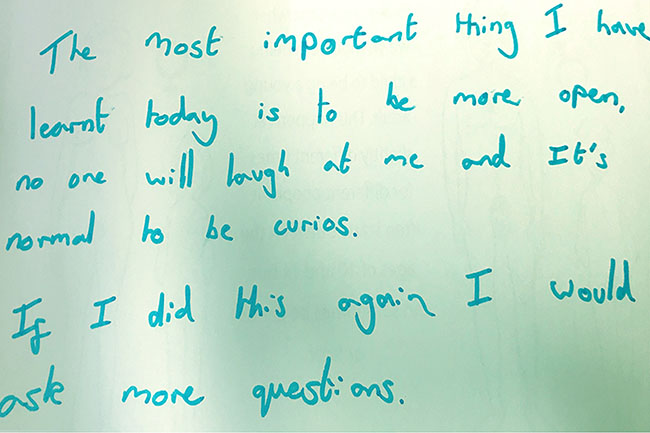 The most important thing I have
learnt today is to be more open,
no one will laugh at me and It's
normal to be curios.
If I did this again I would
ask more questions.